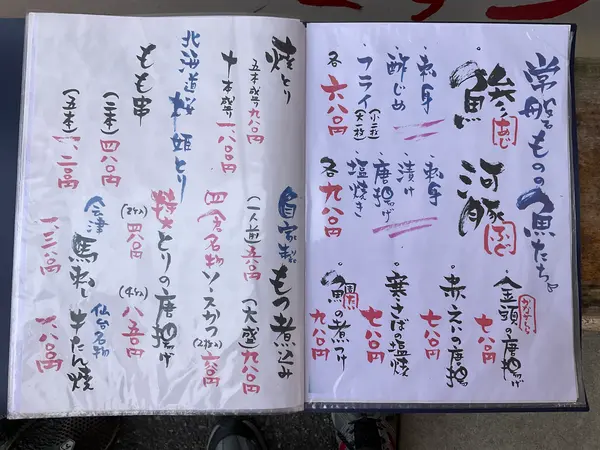 常磐ものの魚たち
鯵 あじ
・刺身
・酢じめ
・フライ(小二枚 大一枚)
各 六八〇円
河豚 ふぐ
・刺身
・漬け
・唐揚げ
・塩焼き
各 九八〇円
・金頭の唐揚げ かながしら
七八〇円
・赤えいの唐揚
七八〇円
・寒さばの塩焼
七八〇円
・魚の煮つけ
九八〇円
焼とり
五本盛り 九八〇円
十本盛り 一八〇〇円
北海道桜姫とり
もも串
(二本) 四八〇円
(五本) 一一二〇円
自家製もつ煮込み
(一人前) 五八〇円 (大盛) 九八〇円
四倉名物ソースかつ(2枚) 六八〇円
特大とりの唐揚げ
(2ケ) 四八〇円 (4ケ) 八五〇円
会津 馬刺し
一三八〇円
仙台名物 牛たん焼
一八八〇円